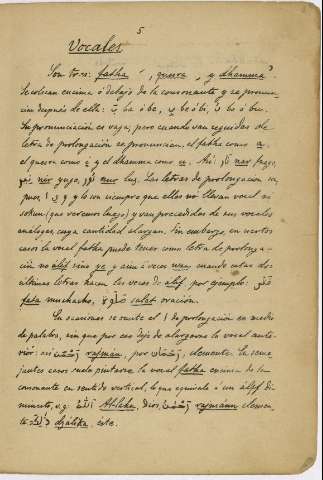 5
Vocales
Son tres: fatha َ, quesra ِ, y dhamma ُ.
Se colocan encima ó debajo de la consonante y se pronun-
cian después de ella: بَ ba ó be, بِ be ó bi, بُ bo ó bu.
Su pronunciación es vaga; pero cuando van seguidas de
letra de prolongación se pronuncian, el fatha como a,
el quesra como i y el dhamma como u. Así: نار nar fuego,
نير nir yugo, نور nur luz. Las letras de prolongación, es
pues, ا, ي y و son siempre que ellas no llevan vocal ni
sokun (que veremos luego) y van precedidas de sus vocales
análogas, cuya cantidad alargan. Sin embargo, en ciertos
casos la vocal fatha puede tener como letra de prolonga-
ción no álif sino ye y aún á veces wau, cuando estas dos
últimas letras hacen las veces de alif, por ejemplo: فتى
fata muchacho, صلوة salat oración.
En ocasiones se omite el ا de prolongación en medio
de palabra, sin que por eso deje de alargarse la vocal ante-
rior: así رحمن raḥman, por رحمان, clemente. En seme-
jantes casos suele ponerse la vocal fatha encima de la
consonante en sentido vertical, lo que equivale á un álif di-
minuto, v.g. الله Al-lahu, Dios, رحمن raḥmánn clemen-
te ذلك dzálika, éste.